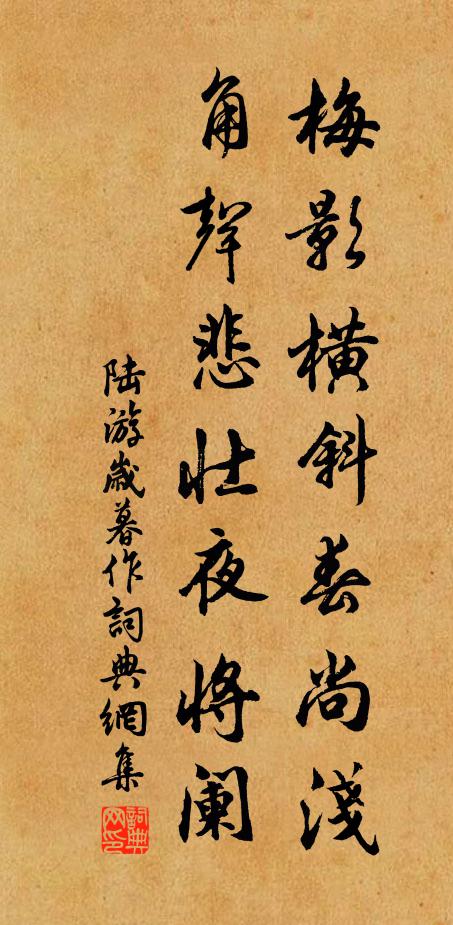 梅影横斜春尚淺
角聲悲壯夜將闌
陆游歲暮作詞典網集
詞典网印